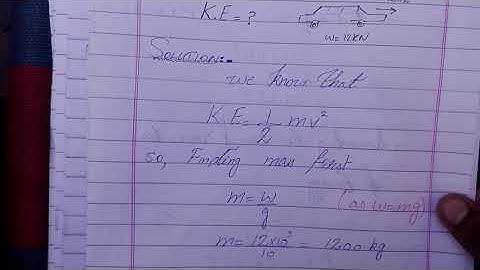 K.E = ?
w=12KN
Solution:-
we know that
K.E = 1/2 mv²
so, Finding mass first
m = w/g (as w=mg)
m = 12×10³/10 = 1200 kg